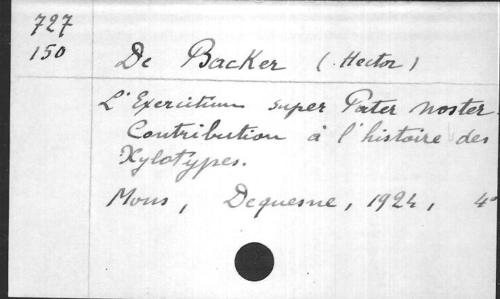 727
150
De Backer (Hector)
L'Exercitium super Pater noster.
Contribution à l'histoire des
Xylotypes.
Mons, Dequesne, 1924, 4°